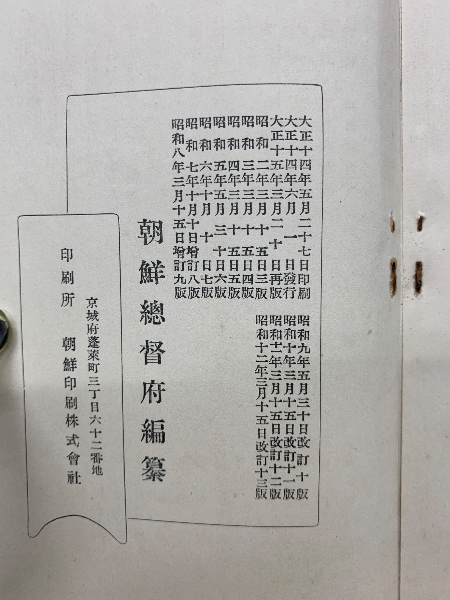 大正十四年五月二十七日印刷
大正十四年六月一日發行
大正十五年三月二十日再版
昭和二年三月十五日三版
昭和三年三月十五日四版
昭和四年三月十五日五版
昭和五年五月三十日六版
昭和六年十月十日七版
昭和七年十月十日增訂八版
昭和八年三月十五日增訂九版
昭和九年五月三十日改訂十版
昭和十年三月十五日改訂十一版
昭和十一年三月十五日改訂十二版
昭和十二年三月十五日改訂十三版
朝鮮總督府編纂
京城府蓬萊町三丁目六十二番地
印刷所 朝鮮印刷株式會社